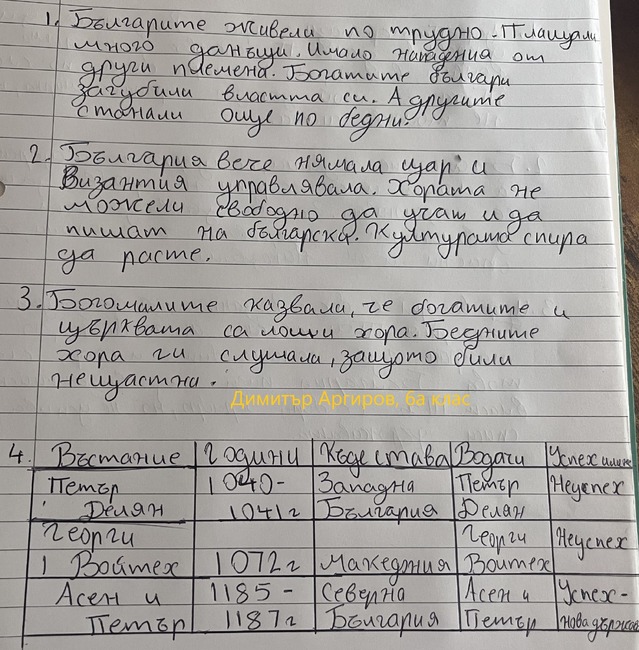 1. Българите живели по трудно. Плащали
много данъци. Имало нападения от
други племена. Богатите българи
загубили властта си. А другите
станали още по бедни.
2. България вече нямала цар и
Византия управлявала. Хората не
можели свободно да учат и да
пишат на българска. Културата спира
да расте.
3. Богомилите казвали, че богатите и
църквата са лоши хора. Бедните
хора ги слушали, защото били
нещастни.
Димитър Аргиров, 6а клас
4. Въстание Години Къде става Водачи Успех или не
Петър 1040- Западна Петър Неуспех
Делян 1041г България Делян
Георги Георги Неуспех
Войтех 1072г Македния Войтех
Асен и 1185 - Северна Асен и Успех-
Петър 1187г България Петър нова държава